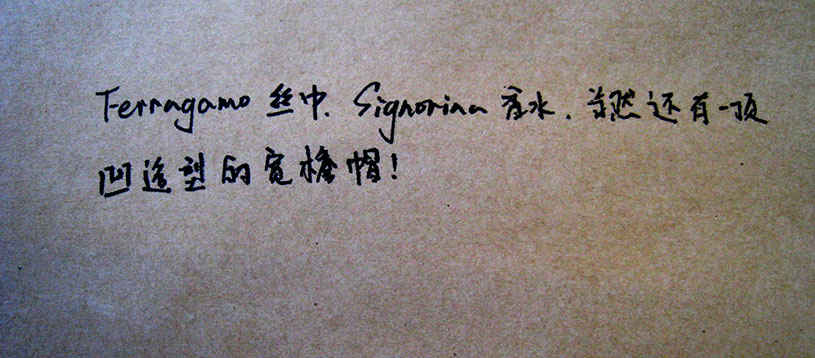 Ferragamo 丝巾、Signorina 香水、当然还有一顶
凹造型的宽檐帽!